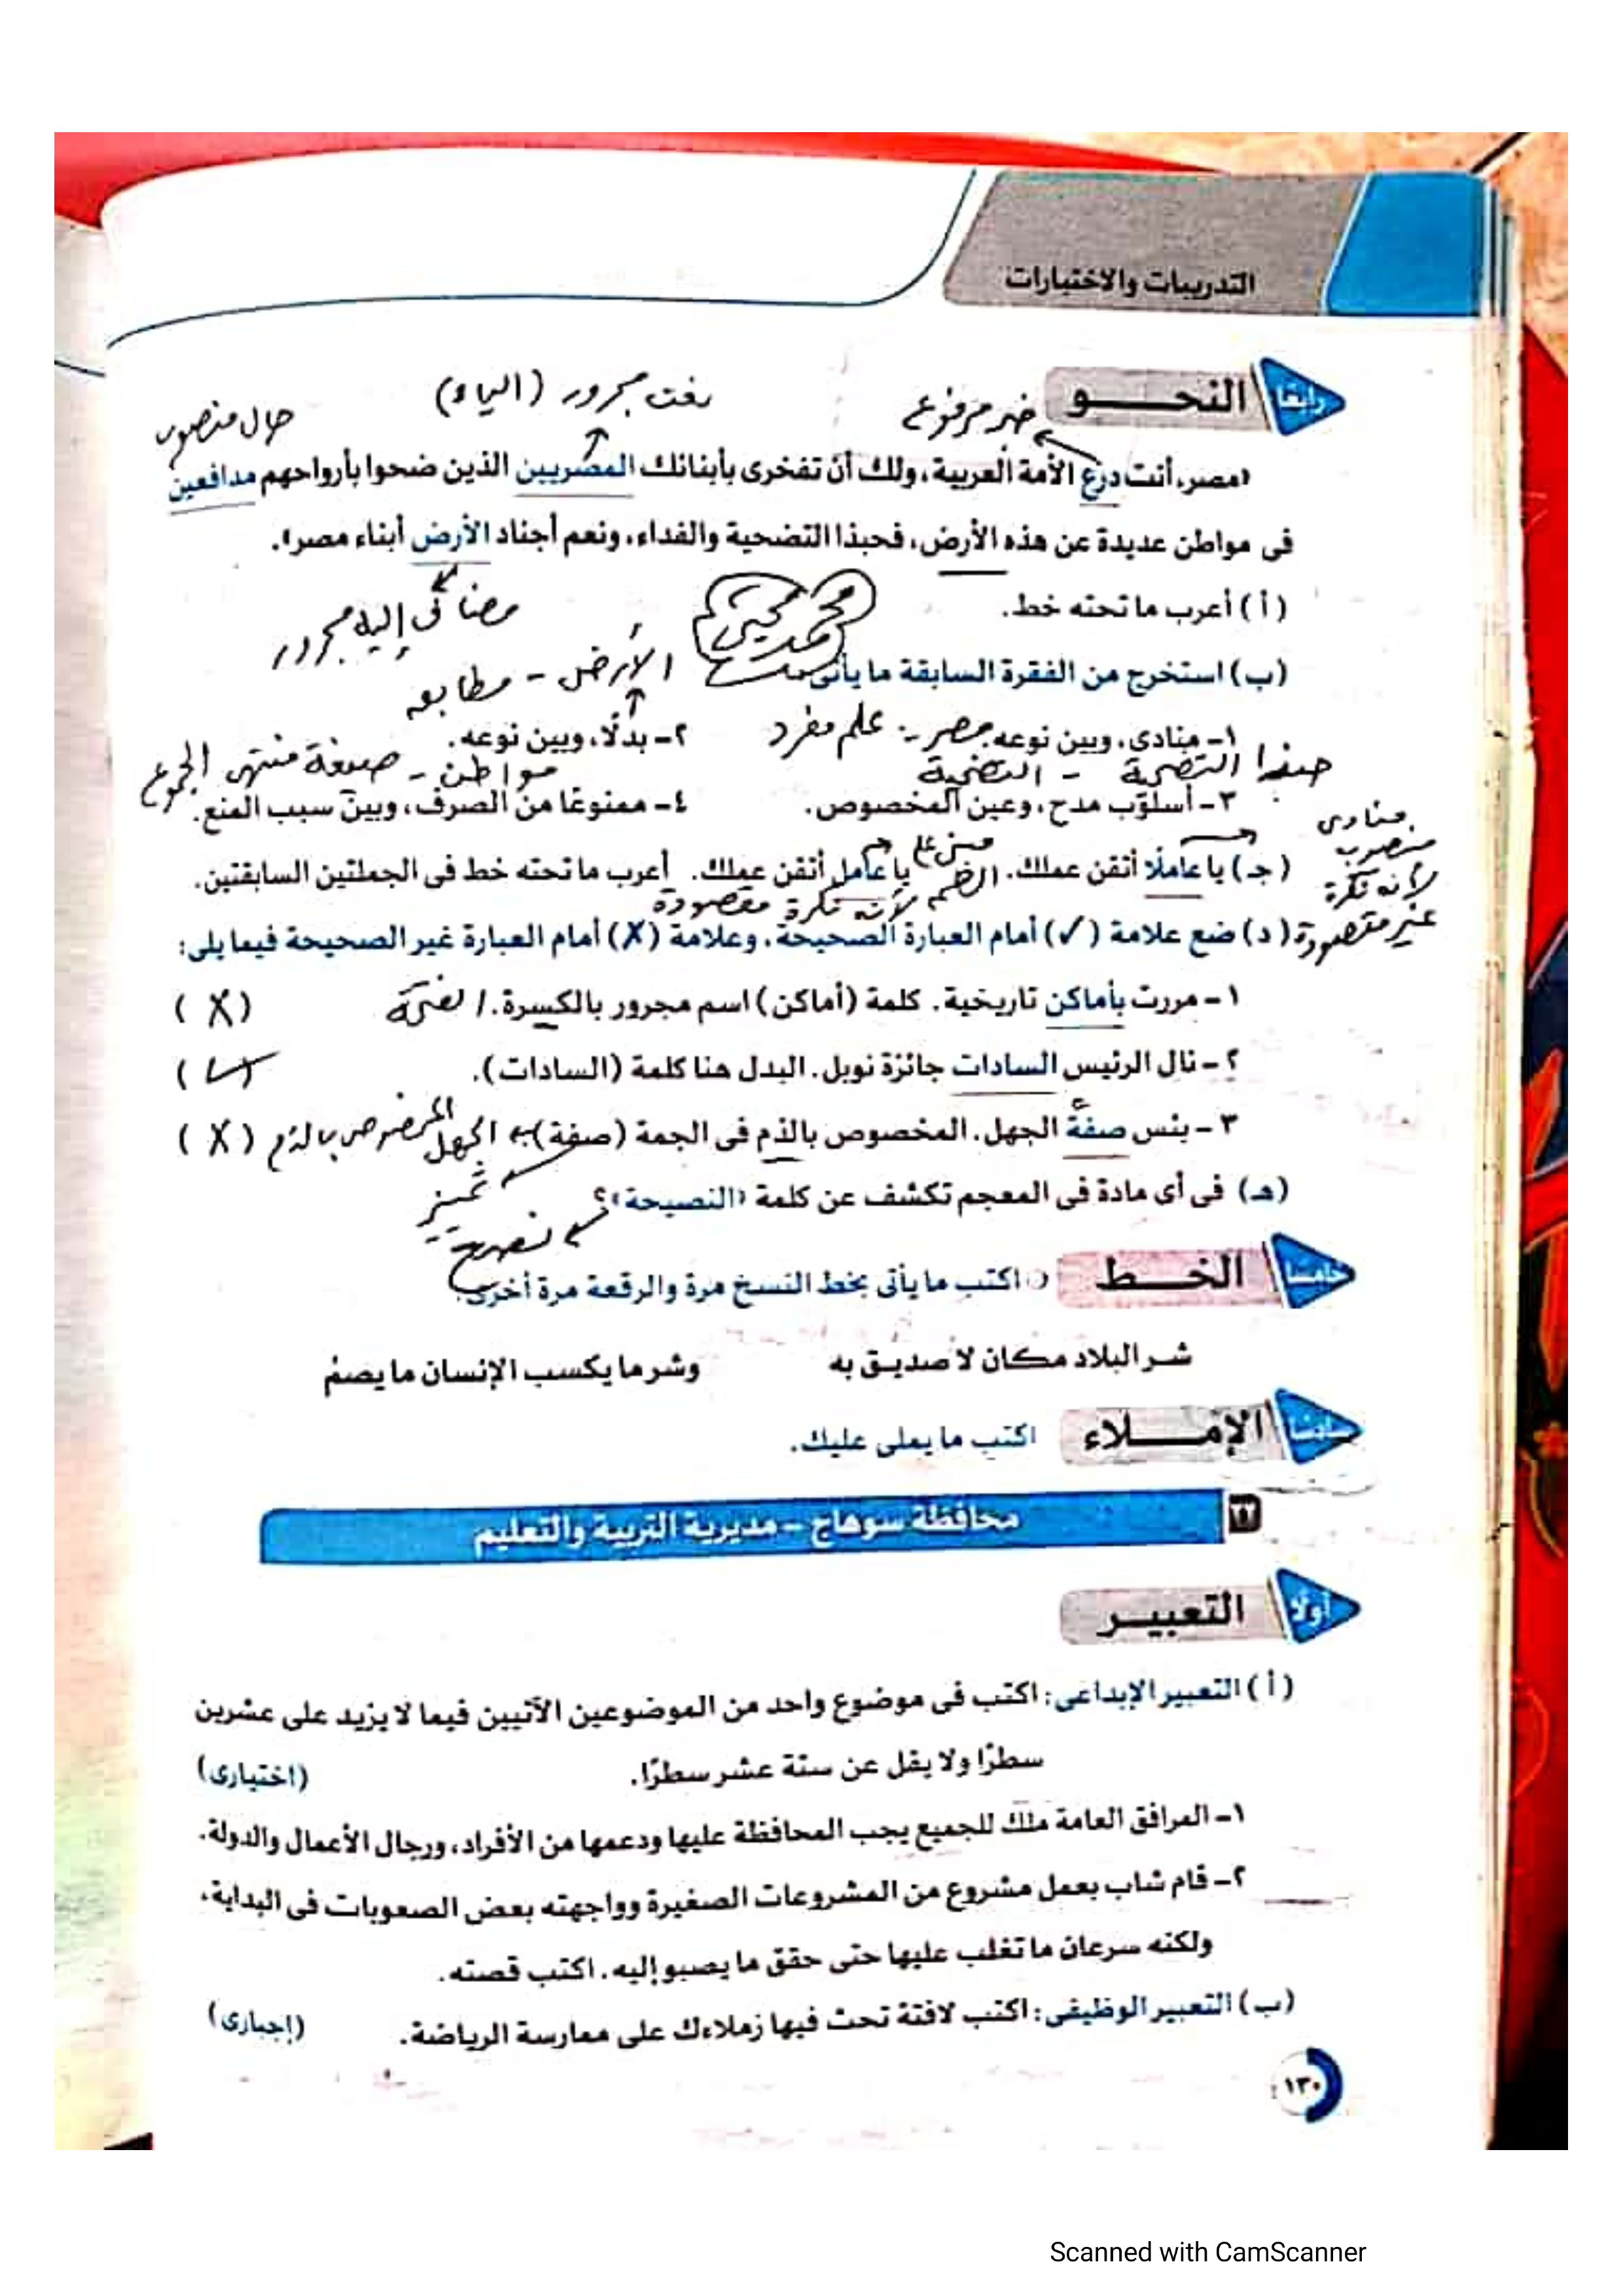 التدريبات والاختبارات
رابعًا النحـــو
خبر مرفوع
نعت مجرور (الياء)
حال منصوب
«مصر، أنت درع الأمة العربية، ولك أن تفخرى بأبنائك المصريين الذين ضحوا بأرواحهم مدافعين
فى مواطن عديدة عن هذه الأرض، فحبذا التضحية والفداء، ونعم أجناد الأرض أبناء مصر».
مضاف إليه مجرور
(أ) أعرب ما تحته خط.
محمد يحيى
(ب) استخرج من الفقرة السابقة ما يأتى
الأرض - مطابق
١- منادى، وبين نوعه. مصر - علم مفرد
٢- بدلًا، وبين نوعه.
حبذا التضحية - التضحية
مواطن - صيغة منتهى الجموع
٣- أسلوب مدح، وعين المخصوص.
٤- ممنوعًا من الصرف، وبين سبب المنع.
منادى منصوب لأنه نكرة غير مقصودة
مبنى على الضم لأنه نكرة مقصودة
(جـ) يا عاملًا أتقن عملك. يا عامل أتقن عملك. أعرب ما تحته خط فى الجملتين السابقتين.
(د) ضع علامة (✓) أمام العبارة الصحيحة، وعلامة (X) أمام العبارة غير الصحيحة فيما يلى:
١- مررت بأماكن تاريخية. كلمة (أماكن) اسم مجرور بالكسرة. الفتحة (X)
٢- نال الرئيس السادات جائزة نوبل. البدل هنا كلمة (السادات). (✓)
٣- بئس صفةً الجهل. المخصوص بالذم فى الجمة (صفة) الجهل المخصوص بالذم (X)
تمييز
(هـ) فى أى مادة فى المعجم تكشف عن كلمة «النصيحة»؟
نصح
خامسًا الخـــط
اكتب ما يأتى بخط النسخ مرة والرقعة مرة أخرى.
شر البلاد مكان لا صديق به وشر ما يكسب الإنسان ما يصم
سادسًا الإمـــلاء
اكتب ما يملى عليك.
١٧ محافظة سوهاج - مديرية التربية والتعليم
أولًا التعبيـر
(أ) التعبير الإبداعى: اكتب فى موضوع واحد من الموضوعين الآتيين فيما لا يزيد على عشرين
سطرًا ولا يقل عن ستة عشر سطرًا. (اختيارى)
١- المرافق العامة ملك للجميع يجب المحافظة عليها ودعمها من الأفراد، ورجال الأعمال والدولة.
٢- قام شاب بعمل مشروع من المشروعات الصغيرة وواجهته بعض الصعوبات فى البداية،
ولكنه سرعان ما تغلب عليها حتى حقق ما يصبو إليه. اكتب قصته.
(ب) التعبير الوظيفى: اكتب لافتة تحث فيها زملاءك على ممارسة الرياضة. (إجبارى)
١٣٠
Scanned with CamScanner